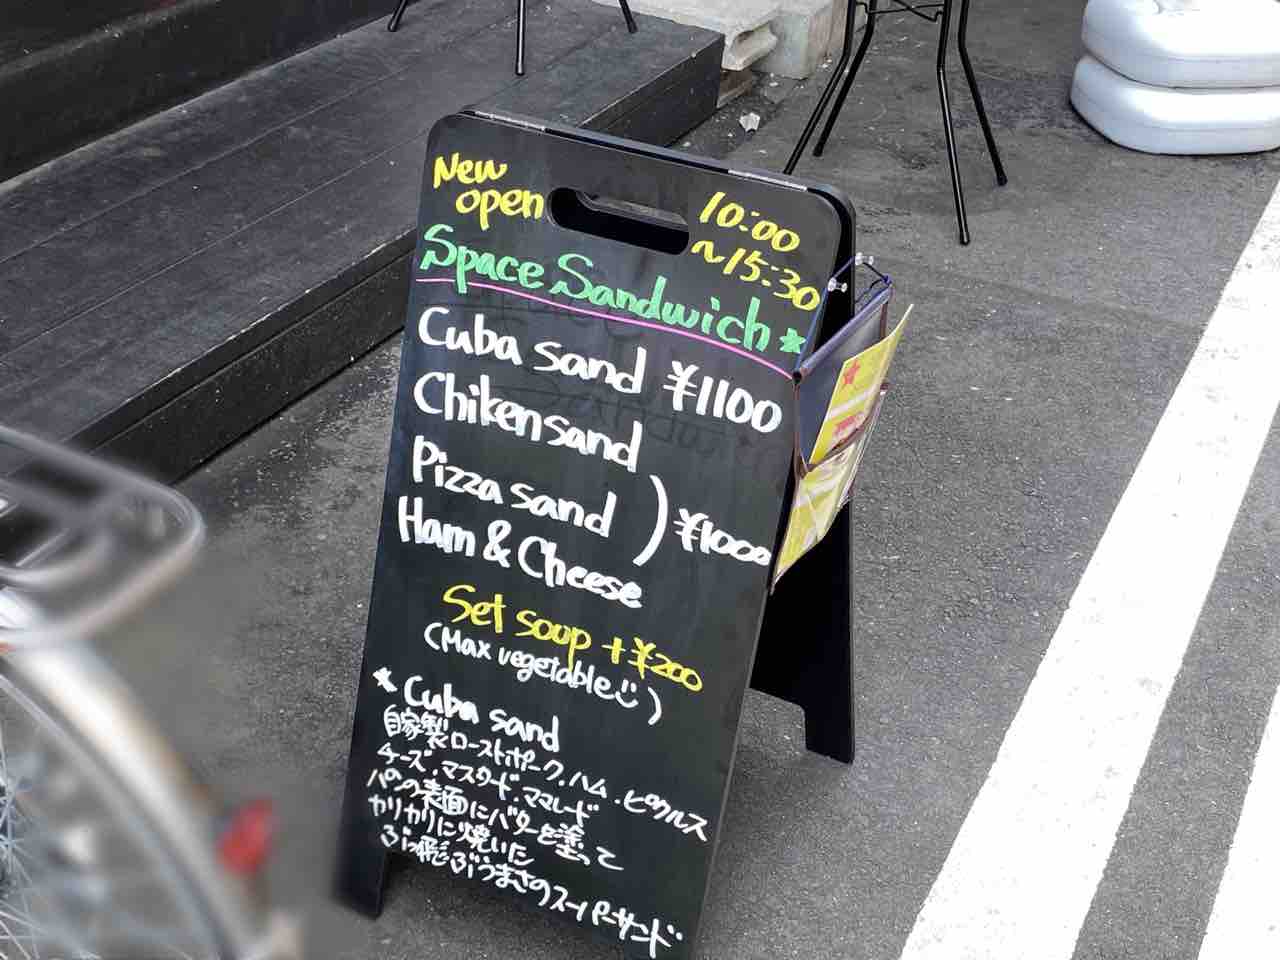 New
open
10:00
~15:30
Space Sandwich*
Cuba sand ¥1100
Chiken sand
Pizza sand
Ham & Cheese
) ¥1000
Set soop +¥200
(Max vegetable☺)
* Cuba sand
自家製ローストポーク.ハム.ピクルス
チーズ.マスタード.ママレード
パンの表面にバターを塗って
カリカリに焼いた
ぶっ飛ぶうまさのスーパーサンド